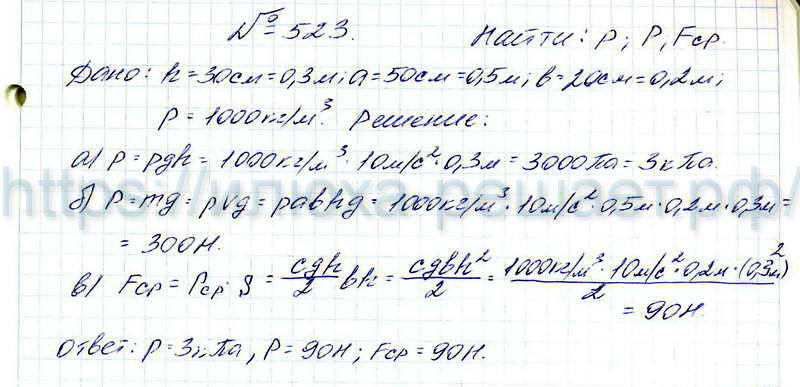 № 523.
Найти: p; P, Fср.
Дано: h = 30см = 0,3м; a = 50см = 0,5м; b = 20см = 0,2м;
ρ = 1000кг/м³. Решение:
а) p = ρgh = 1000кг/м³ · 10м/с² · 0,3м = 3000Па = 3кПа.
б) P = mg = ρVg = ρabhg = 1000кг/м³ · 10м/с² · 0,5м · 0,2м · 0,3м =
= 300Н.
в) Fср = Pср · S = cgh/2 bh = cgbh²/2 = 1000кг/м³ · 10м/с² · 0,2м · (0,3м)²/2
= 90Н.
Ответ: p = 3кПа, P = 90Н; Fср = 90Н.
https://илюха-решает.рф/